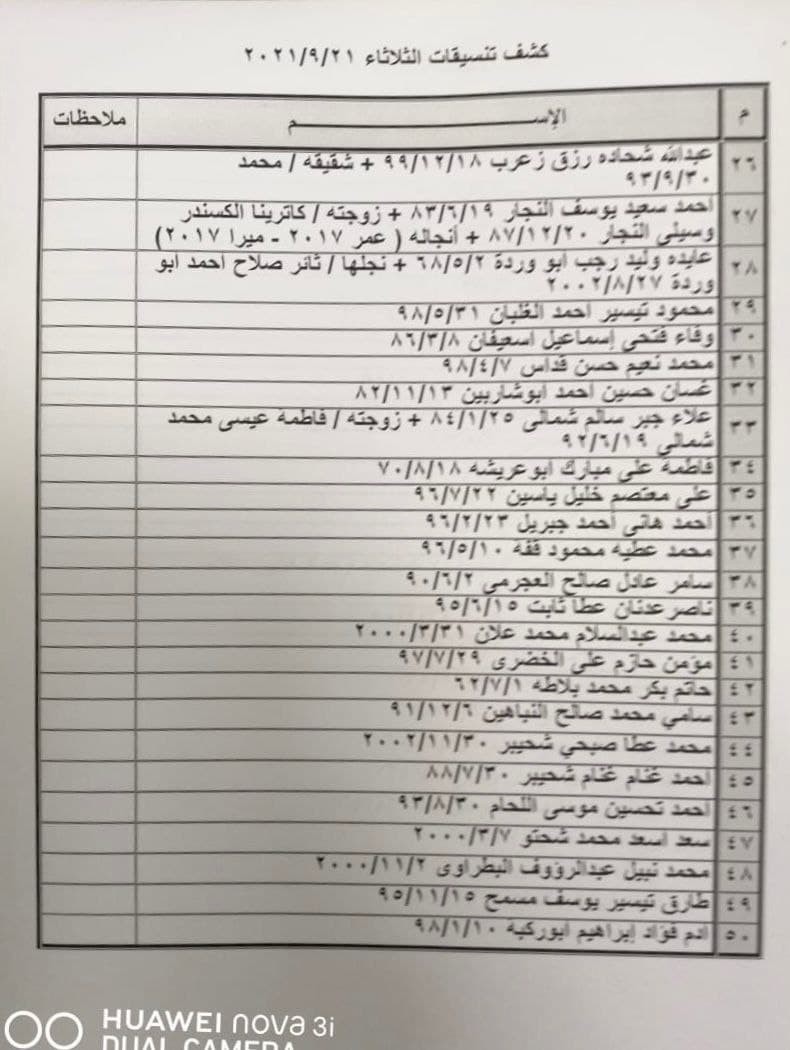 كشف تنسيقات الثلاثاء ٢٠٢١/٩/٢١
م الإســـــــم ملاحظات
٢٦ عبدالله شحاده رزق زعرب ٩٩/١٢/١٨ + شقيقه / محمد
٩٣/٩/٣٠
٢٧ احمد سعيد يوسف النجار ٨٣/٦/١٩ + زوجته / كاترينا الكسندر
وسيلى النجار ٨٧/١٢/٢٠ + أنجاله ( عمر ٢٠١٧ - ميرا ٢٠١٧)
٢٨ عايده وليد رجب ابو وردة ٦٨/٥/٢ + نجلها / ثائر صلاح احمد ابو
وردة ٢٠٠٢/٨/٢٧
٢٩ محمود تيسير احمد الغلبان ٩٨/٥/٣١
٣٠ وفاء فتحى إسماعيل اسعيفان ٨٦/٣/٨
٣١ محمد نعيم حسن قداس ٩٨/٤/٧
٣٢ غسان حسين احمد ابوشاربين ٨٢/١١/١٣
٣٣ علاء جبر سالم شمالى ٨٤/١/٢٥ + زوجته / فاطمة عيسى محمد
شمالى ٩٢/٦/١٩
٣٤ فاطمة على مبارك ابوعريشه ٧٠/٨/١٨
٣٥ على معتصم خليل ياسين ٩٦/٧/٢٢
٣٦ احمد هانى احمد جبريل ٩٦/٢/٢٣
٣٧ محمد عطيه محمود قفة ٩٦/٥/١٠
٣٨ سامر عادل صالح العجرمى ٩٠/٦/٢
٣٩ ناصر عدنان عطا ثابت ٩٥/٦/١٥
٤٠ محمد عبدالسلام محمد علان ٢٠٠٠/٣/٣١
٤١ مؤمن حازم على الخضرى ٩٧/٧/٢٩
٤٢ حاتم بكر محمد بلاطه ٦٢/٧/١
٤٣ سامي محمد صالح النباهين ٩١/١٢/٦
٤٤ محمد عطا صبحي شحيبر ٢٠٠٢/١١/٣٠
٤٥ احمد غنام غنام شحيبر ٨٨/٧/٣٠
٤٦ احمد تحسين موسى اللحام ٩٣/٨/٣٠
٤٧ سعد اسعد محمد شحتو ٢٠٠٠/٣/٧
٤٨ محمد نبيل عبدالرؤوف البطراوى ٢٠٠٠/١١/٢
٤٩ طارق تيسير يوسف مسمح ٩٥/١١/١٥
٥٠ ادم فؤاد إبراهيم ابوركبة ٩٨/١/١٠
HUAWEI nova 3i
DUAL CAMERA